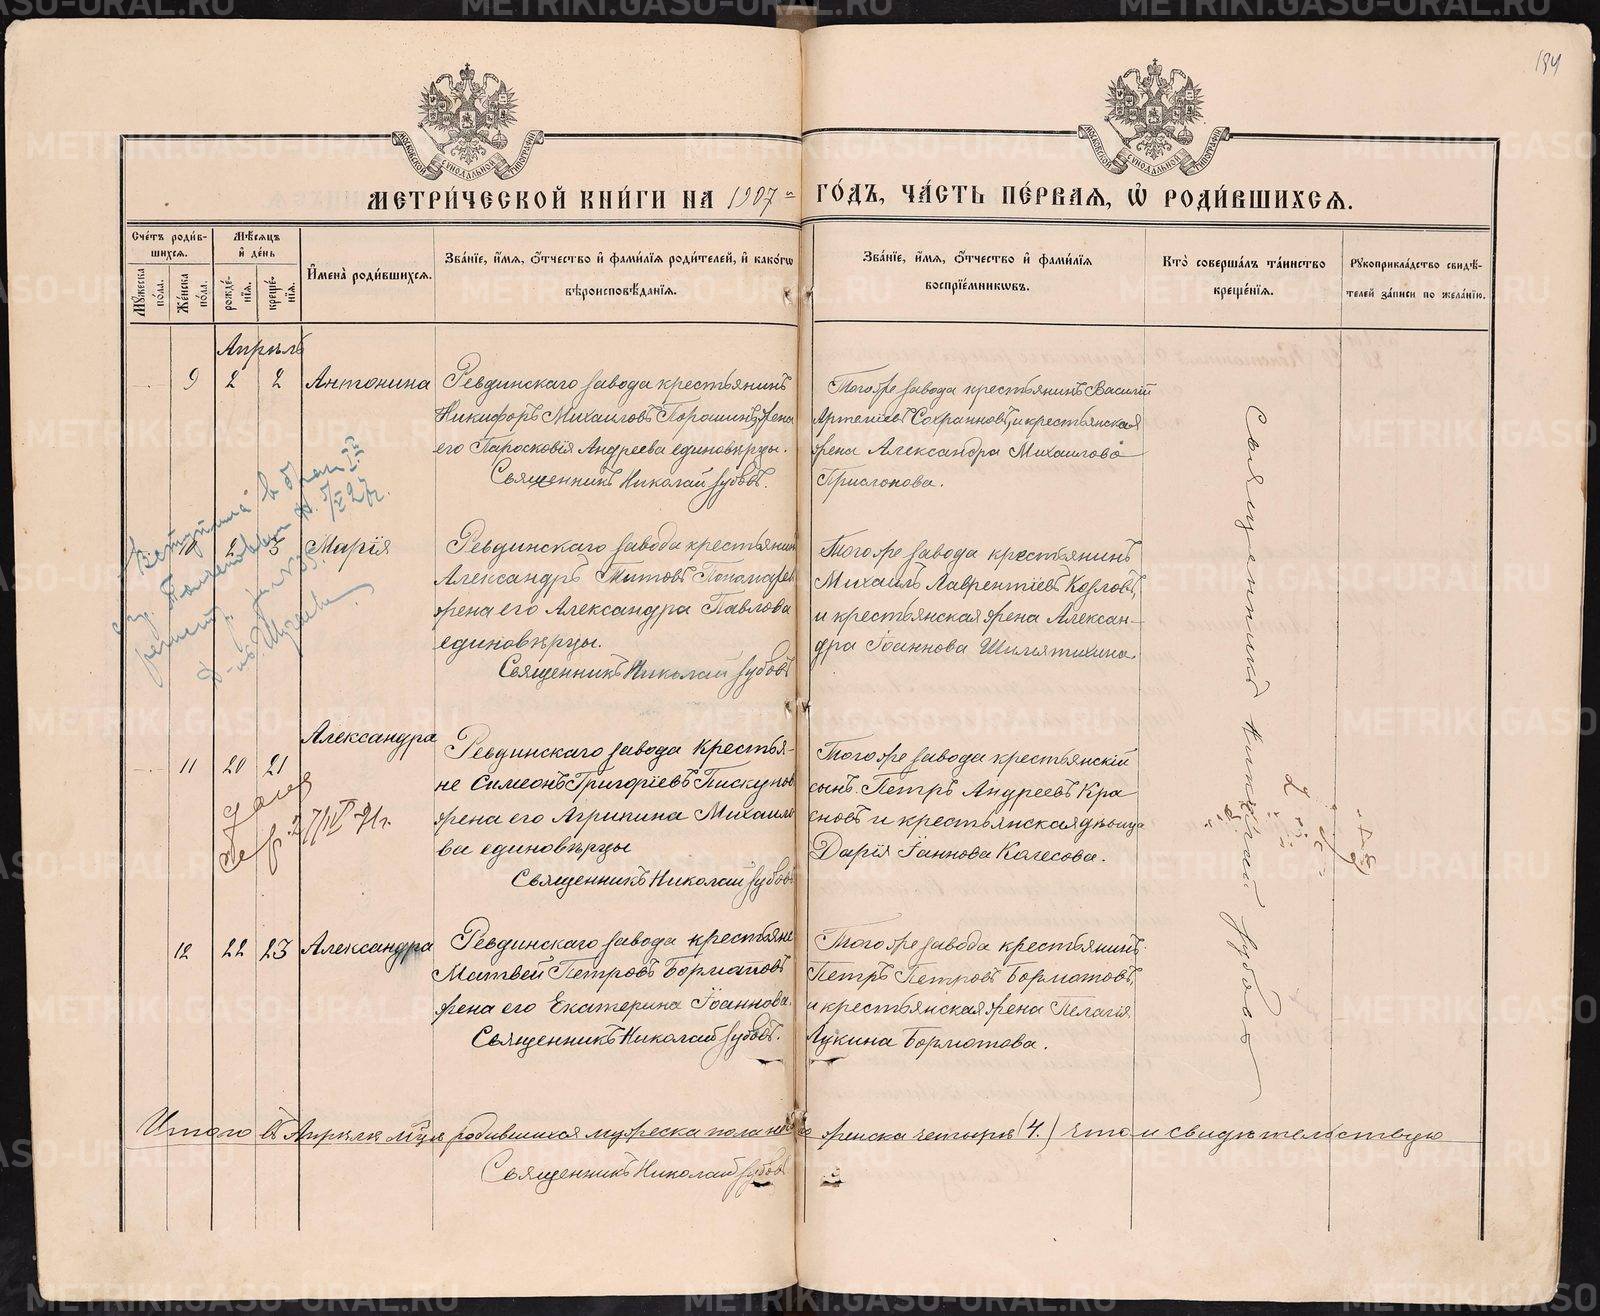 194
МЕТРИ́ЧЕСКОЙ КНИ́ГИ НА 1907 й ГО́ДЪ, ЧА́СТЬ ПЕ́РВАЯ, Ѡ҆ РОДИ́ВШИХСЯ.
Сче́тъ роди́в-
шихся.
Мꙋ́жеска по́ла.
Же́нска по́ла.
Мѣ́сяцъ
и҆ де́нь
рожде́-
нїя.
креще́-
нїя.
И҆мена̀ роди́вшихся.
Зва́нїе, и҆́мя, ѻ҆́тчество и҆ фами́лїя роди́телей, и҆ како́гѡ
вѣроисповѣ́данїя.
Зва́нїе, и҆́мя, ѻ҆́тчество и҆ фами́лїя
воспрїе́мниковъ.
Кто̀ соверша́лъ та́инство
креще́нїя.
Рꙋкоприкла́дство свидѣ́-
телей за́писи по жела́нїю.
Апрѣль
9 2 2 Антонина
Ревдинскаго завода крестьянинъ
Никифоръ Михаиловъ Порошинъ, жена
его Паросковія Андреева единовѣрцы.
Священникъ Николай Зубовъ.
Того же завода крестьянинъ Василій
Артеміевъ Сохранновъ, и крестьянская
жена Александра Михаилова
10 2 3 Марія
Ревдинскаго завода крестьянин
Александръ Титовъ Пономарев
жена его Александра Павлова
единовѣрцы.
Священникъ Николай Зубовъ
Того же завода крестьянинъ
Михаилъ Лаврентіевъ Козловъ,
и крестьянская жена Алексан-
дра Іоаннова
Вступила в брак
5/X 27 г.
11 20 21 Александра
Ревдинскаго завода крестья-
не Симеонъ Григоріевъ Пискунов
жена его Агрипина Михаило
ва единовѣрцы
Священникъ Николай Зубовъ
Того же завода крестьянскій
сынъ Петръ Андреевъ Кра
сновъ и крестьянская дѣвица
Дарія Іаннова Колесова.
12 22 23 Александра
Ревдинскаго завода крестьяне
Матвей Петровъ Бормотовъ
жена его Екатерина Іоаннова.
Священникъ Николай Зубовъ.
Того же завода крестьянинъ
Петръ Петровъ Бормотовъ,
и крестьянская жена Пелагія
Лукина Бормотова.
Священникъ Николай Зубовъ
Итого въ Апрѣлѣ м-цѣ родившихся мужеска пола женска четыре (4.) что и свидѣтельствую
Священникъ Николай Зубовъ
METRIKI.GASO-URAL.RU